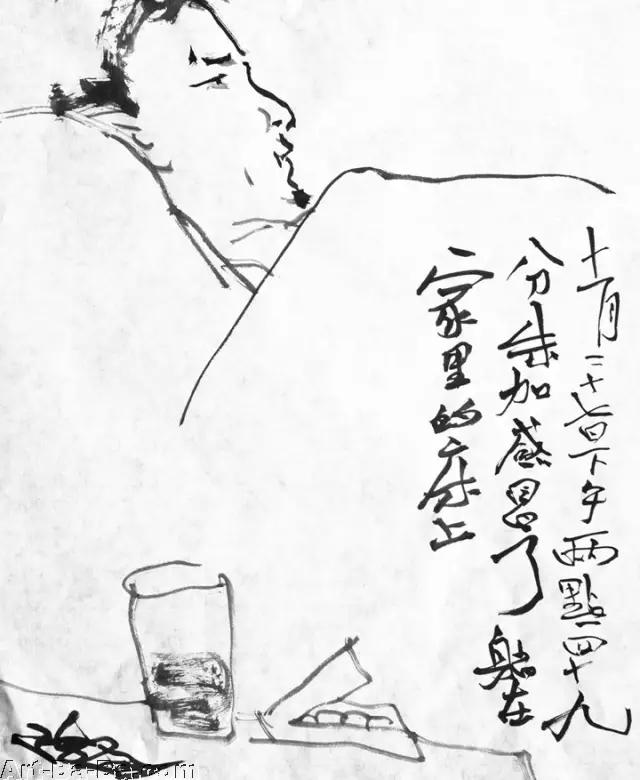 十一月二十七日下午两點四十九
分朱加感冒了 躺在
家里的床上
Art-Ba-Ba.com